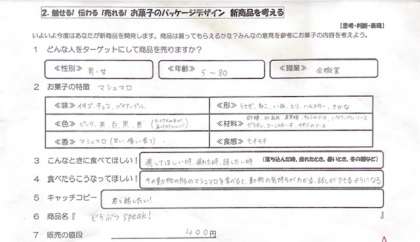 2. 魅せる！伝わる！売れる！お菓子のパッケージデザイン 新商品を考える
【思考・判断・表現】
いよいよ今度はあなたが新商品を開発します。商品は買ってもらえるかな？みんなの意見を参考にお菓子の内容を考えよう。
1 どんな人をターゲットにして商品を売りますか？
≪性別≫ 男・女 ≪年齢≫ 5～80 ≪職業≫ 会社員
2 お菓子の特徴 マシュマロ
≪味≫ イチゴ、チョコ、 ≪形≫ うさぎ、ねこ、いぬ、とり、ハムスター、さかな
≪色≫ ピンク、茶、白、黒、黄 ≪材料≫
≪香≫ マシュマロ ≪食感≫ もちもち
3 こんなときに食べてほしい！ 癒してほしい時、疲れた時、話したい時 (落ち込んだ時、疲れたとき、暑いとき、冬の朝など)
4 食べたらこうなってほしい！ その動物の形のマシュマロを食べると、動物の気持ちがわかる、話しができるようになる
5 キャッチコピー 君と話したい！
6 商品名 『どうぶつ speak!
7 販売の値段 400円